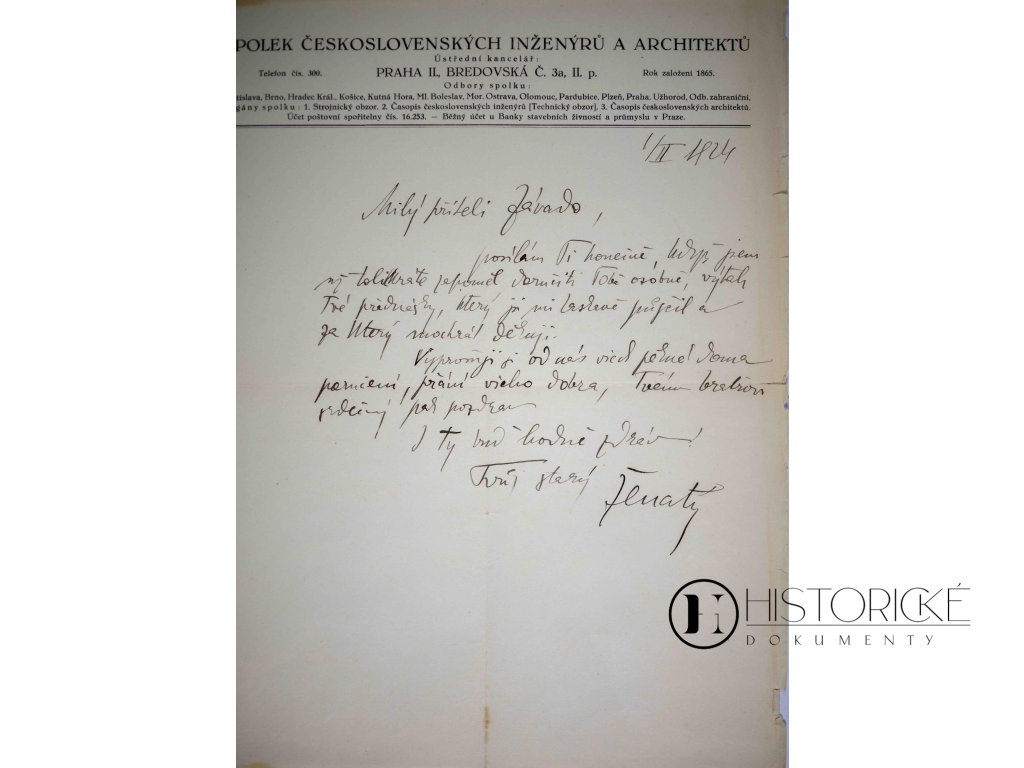 POLEK ČESKOSLOVENSKÝCH INŽENÝRŮ A ARCHITEKTŮ
Ústřední kancelář:
Telefon čís. 300. PRAHA II., BREDOVSKÁ Č. 3a, II. p. Rok založení 1865.
Odbory spolku:
tislava, Brno, Hradec Král., Košice, Kutná Hora, Ml. Boleslav, Mor. Ostrava, Olomouc, Pardubice, Plzeň, Praha, Užhorod, Odb. zahraniční.
gány spolku: 1. Strojnický obzor. 2. Časopis československých inženýrů [Technický obzor]. 3. Časopis československých architektů.
Účet poštovní spořitelny čís. 16.253. — Běžný účet u Banky stavebních živností a průmyslu v Praze.
1/II 1924
Milý příteli Závado,
posílám Ti konečně, když jsem
již tolikráte zapoměl doručiti Tobě osobně, výtah
Tvé přednášky, který js mi laskavě půjčil a
za který mockrát děkuji.
Vyprav od nás všech pěkné doma
poručení, přání všeho dobra, Tvému bratrovi
srdečný pak pozdrav
I ty buď hodně zdráv!
Tvůj starý
Ženatý
HISTORICKÉ
DOKUMENTY